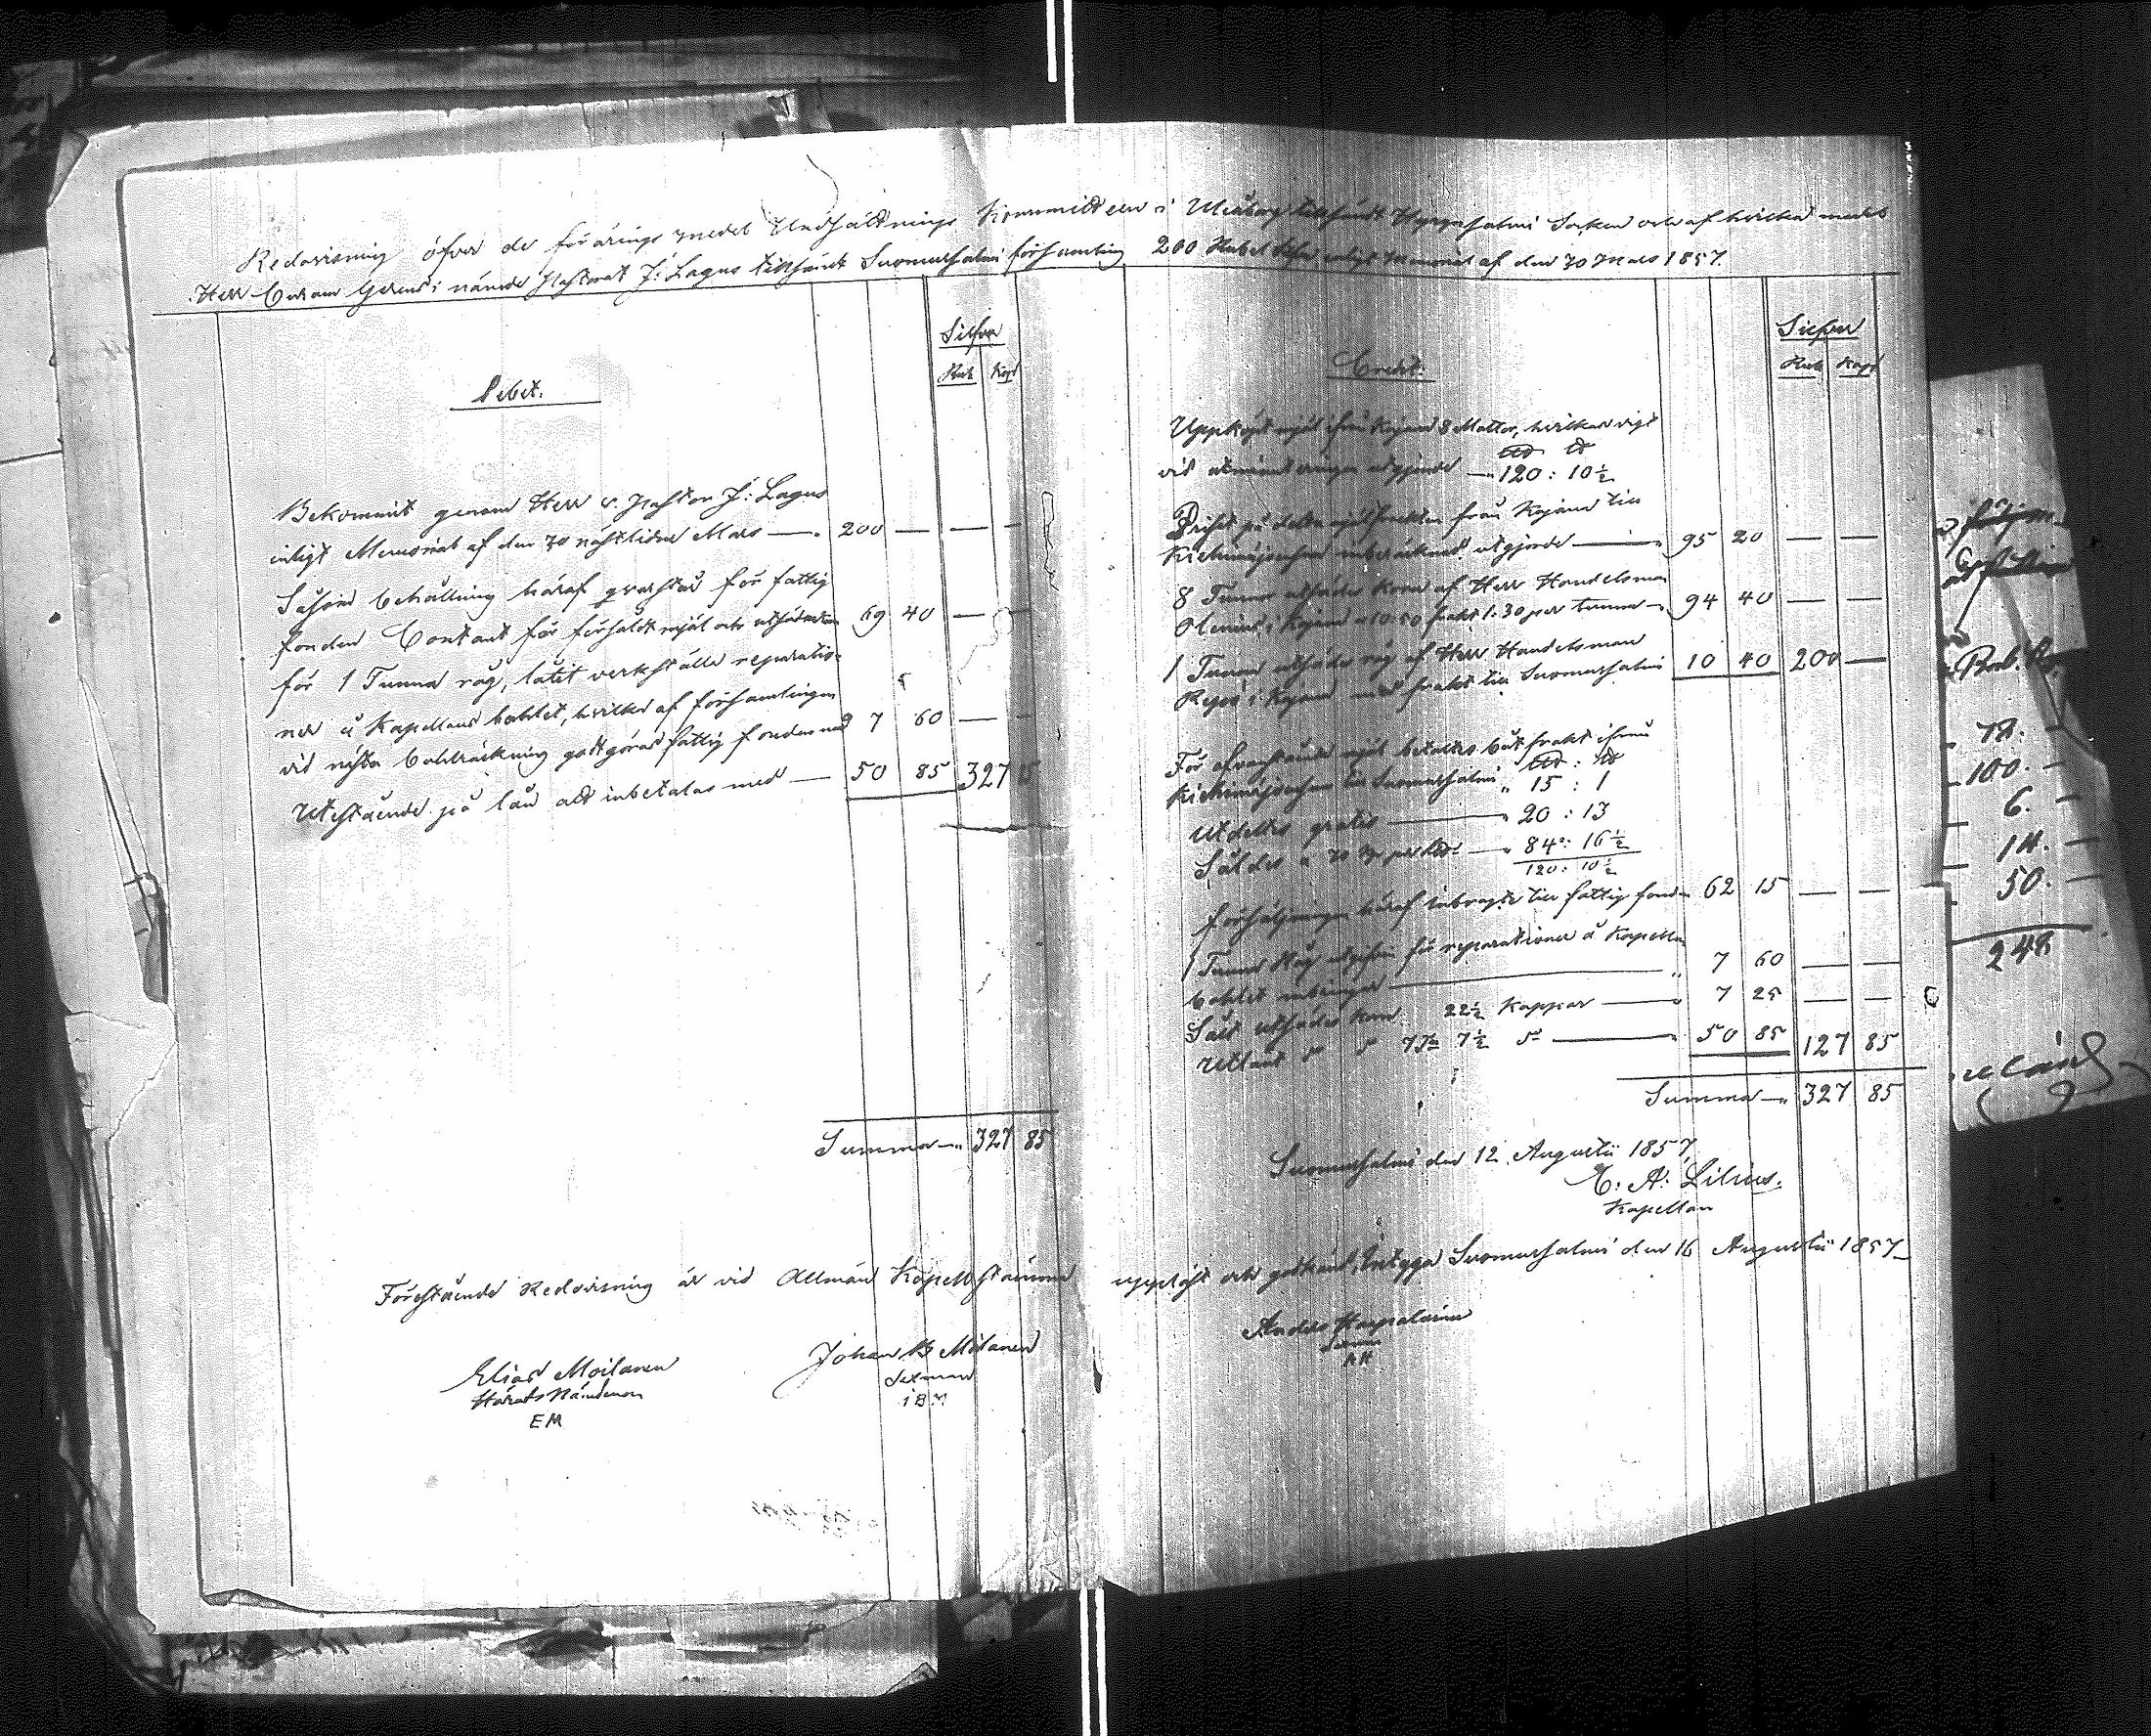 Redovisning öfver de förärings medel Undsättnings Kommittéen i Uleåborg tillsändt Hyrynsalmi Socken och af hvilka medel
Herr Gerens i nämnde Pastorat J: Lagus tillsändt Suomussalmi församling 200 Rubel Silfver enligt Memorial af den 30 Mars 1857.
Debet.
Silfver
Rub Kop
Bekommit genom Herr v. Pastor J: Lagus
enligt Memorial af den 30 nästlidne Mars — 200 — — —
Såsom behållning häraf qvarstår för fattig
fonden Contant för försåldt mjöl och utsädeskorn 69 40 — —
för 1 Tunna råg, låtit verkställa reparatio-
ner å Kapellans bohlet, hvilka af församlingen
vid nästa bohlräkning godtgöras fattig fonden med 7 60 — —
Utestående på lån att inbetalas med — 50 85 327 85
Summa — 327 85
Credit:
Silfver
Rub Kop
Uppköpt mjöl ifrån Kajana 8 Mattor, hvilkas vigt
vid utmätningen utgjorde — 120 : 10½
Priset på detta mjöl frakten från Kajana till
inberäknad utgjorde — 95 20 — —
8 Tunnor utsädes korn af Herr Handelsman
i Kajana a 10: 50 frakt 1. 30 per tunna — 94 40 — —
1 Tunna utsädes råg af Herr Handelsman
i Kajana med frakt till Suomussalmi 10 40 200 —
För ofvanstående mjöl betaltes båtfrakt ifrån
till Suomussalmi „ 15 : 1
Utdeltes gratis — „ 20 : 13
Såldes a 70 — „ 84 : 16½
120 : 10½
Försäljningen häraf inbragte till fattig fonden 62 15 — —
1 Tunna Råg för reparationer å Kapellans
bohlet — „ 7 60 — —
Sålt utsädes korn 22½ Kappar — „ 7 25 — —
Utlånt 7 7½ — „ 50 85 127 85
Summa — 327 85
Suomussalmi den 12 Augusti 1857
E. A: Lilius.
Kapellan
Förestående Redovisning är vid Allmän Kapellstämma uppläst och godkänd, intyga Suomussalmi den 16 Augusti 1857
Elias Moilanen
Härads Nämdeman
EM
Johan B Moilanen
Sexman
IBM
Anders
Sexman
AH
78.
100.
6.
14.
50.
248